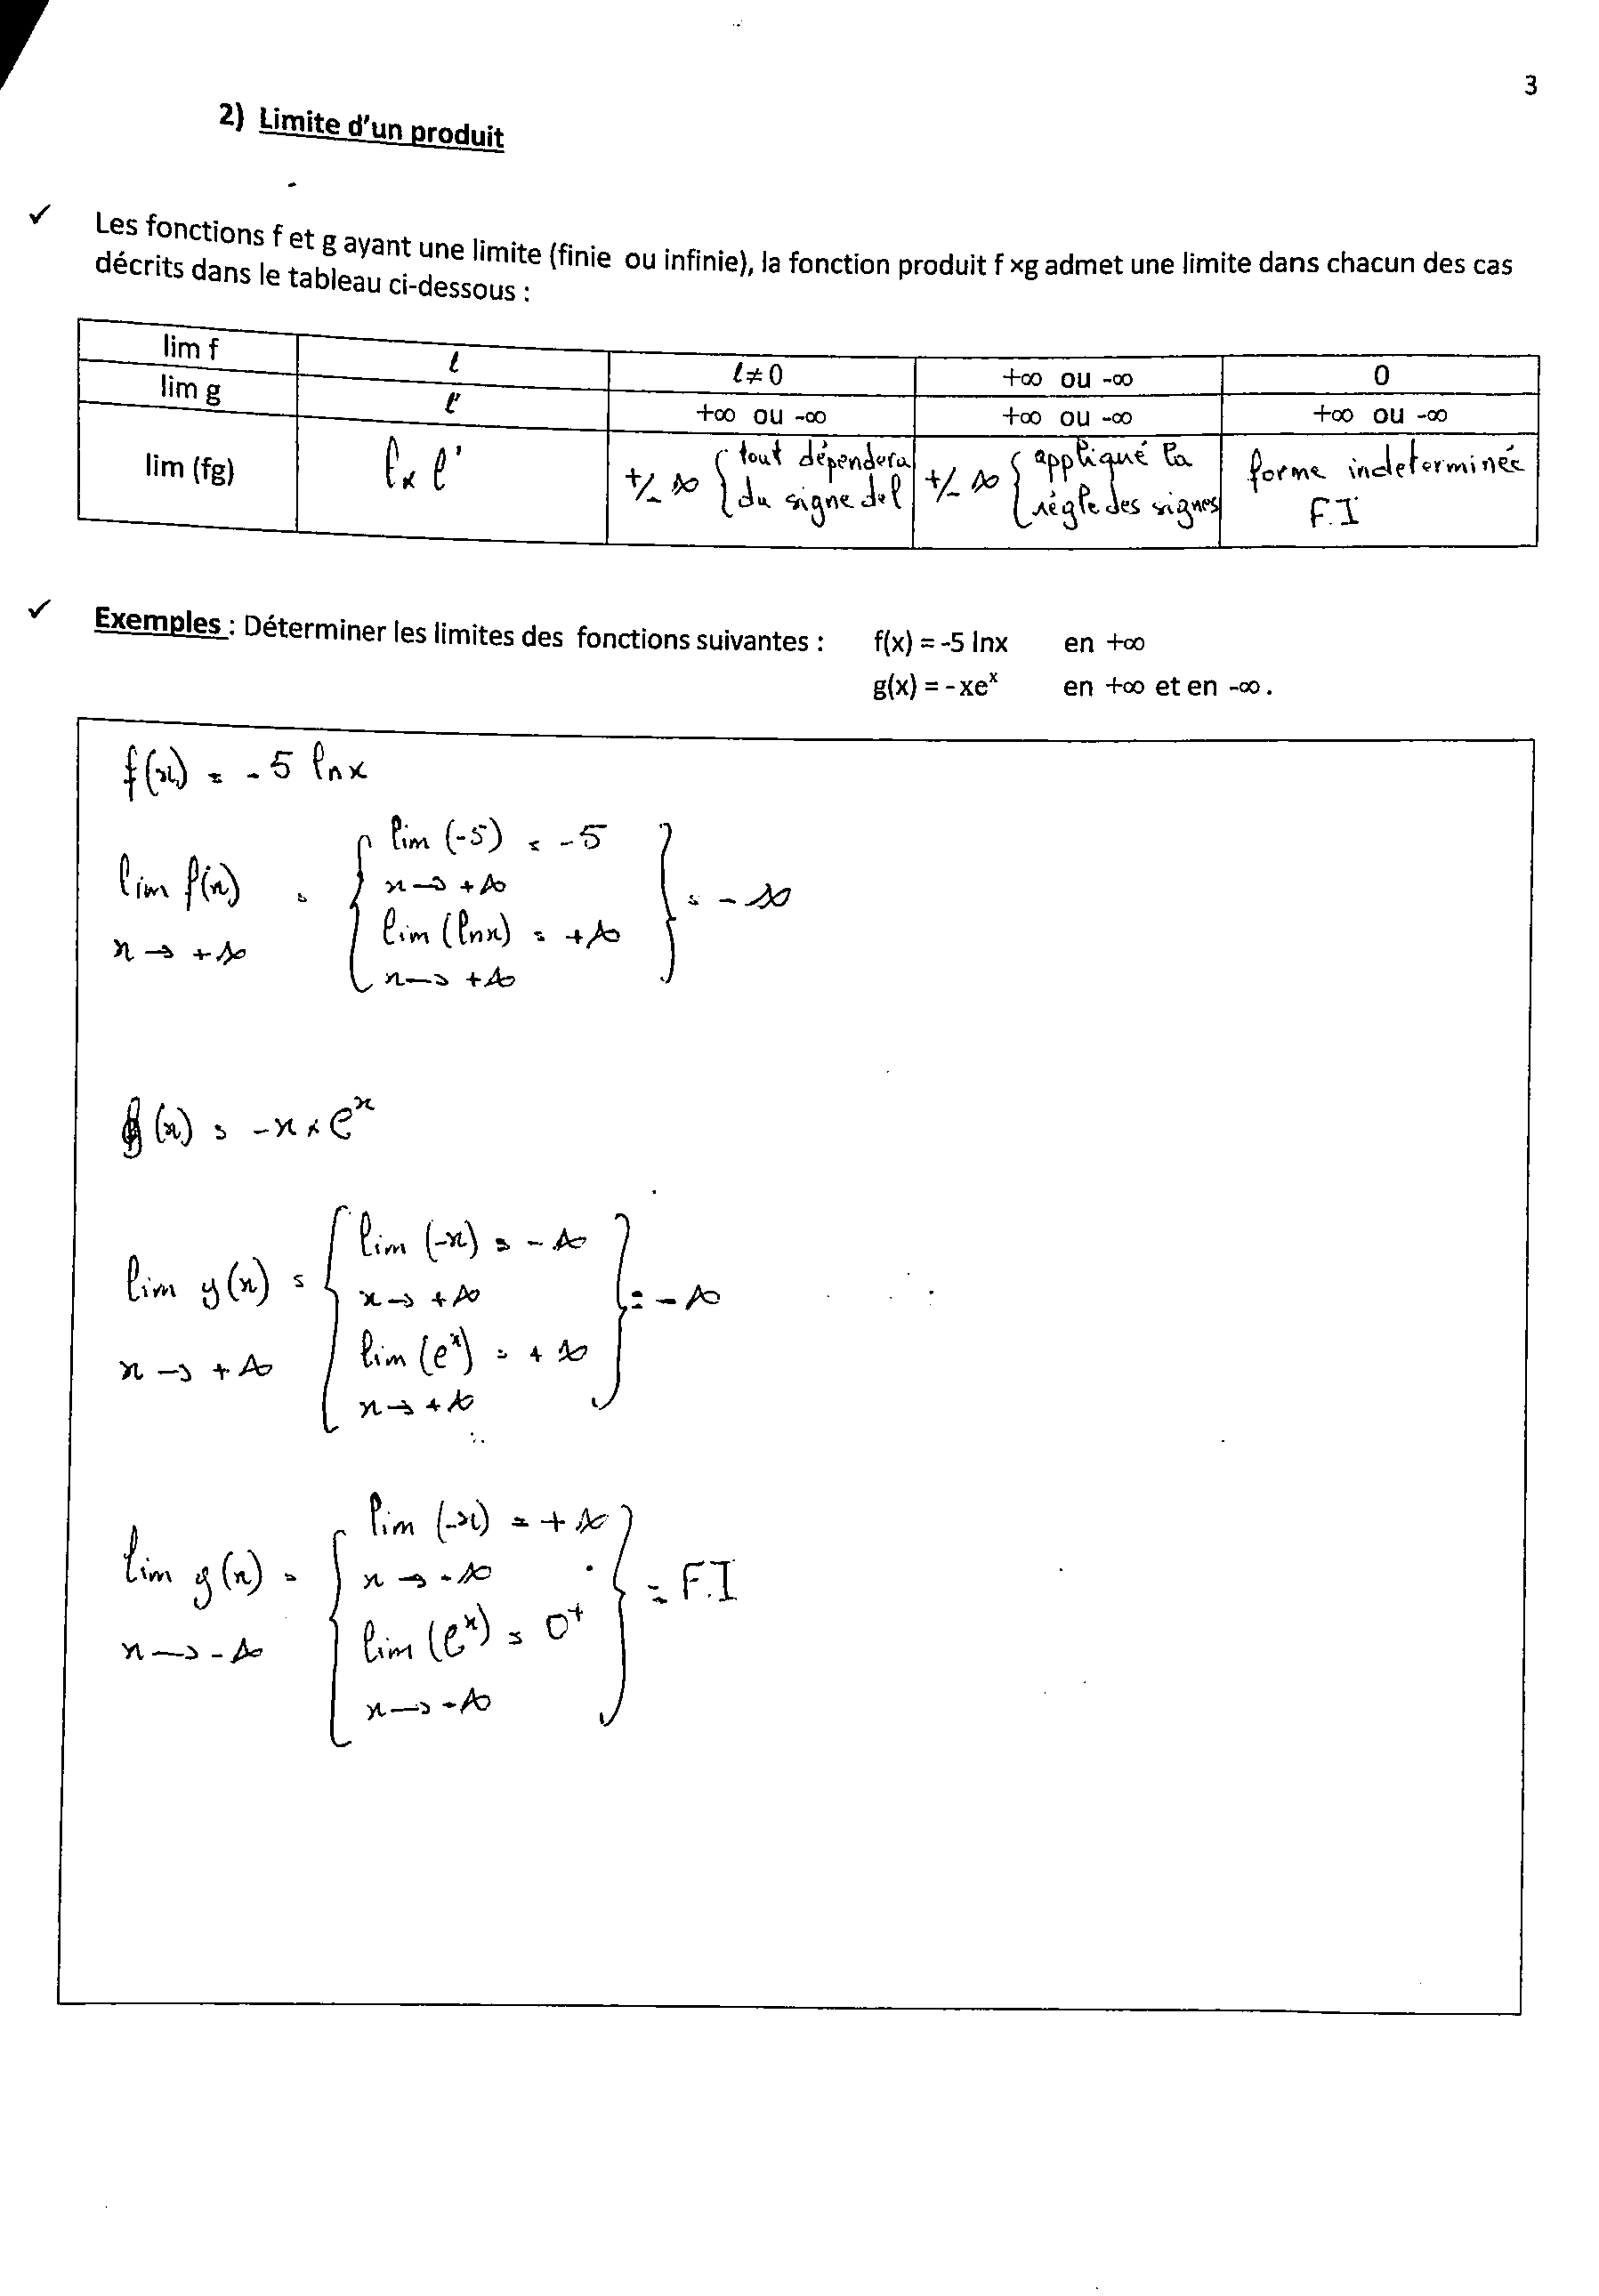 3
2) Limite d'un produit
✓ Les fonctions f et g ayant une limite (finie ou infinie), la fonction produit f ×g admet une limite dans chacun des cas
décrits dans le tableau ci-dessous :
lim f | ℓ | ℓ≠0 | +∞ ou -∞ | 0
lim g | ℓ' | +∞ ou -∞ | +∞ ou -∞ | +∞ ou -∞
lim (fg) | ℓ × ℓ' | +/- ∞ { tout dépendera du signe de ℓ | +/- ∞ { appliqué la règle des signes | forme indeterminée F.I
✓ Exemples : Déterminer les limites des fonctions suivantes : f(x) = -5 lnx en +∞
g(x) = - xeˣ en +∞ et en -∞ .
f(x) = - 5 ln x
lim (-5) = - 5
lim f(x) = x → +∞ = - ∞
lim (lnx) = +∞
x → +∞
x → +∞
g(x) = -x × eˣ
lim (-x) = - ∞
lim g(x) = x → +∞ = - ∞
lim (eˣ) = + ∞
x → +∞
x → +∞
lim (-x) = + ∞
lim g(x) = x → -∞ = F.I
lim (eˣ) = 0⁺
x → -∞
x → -∞